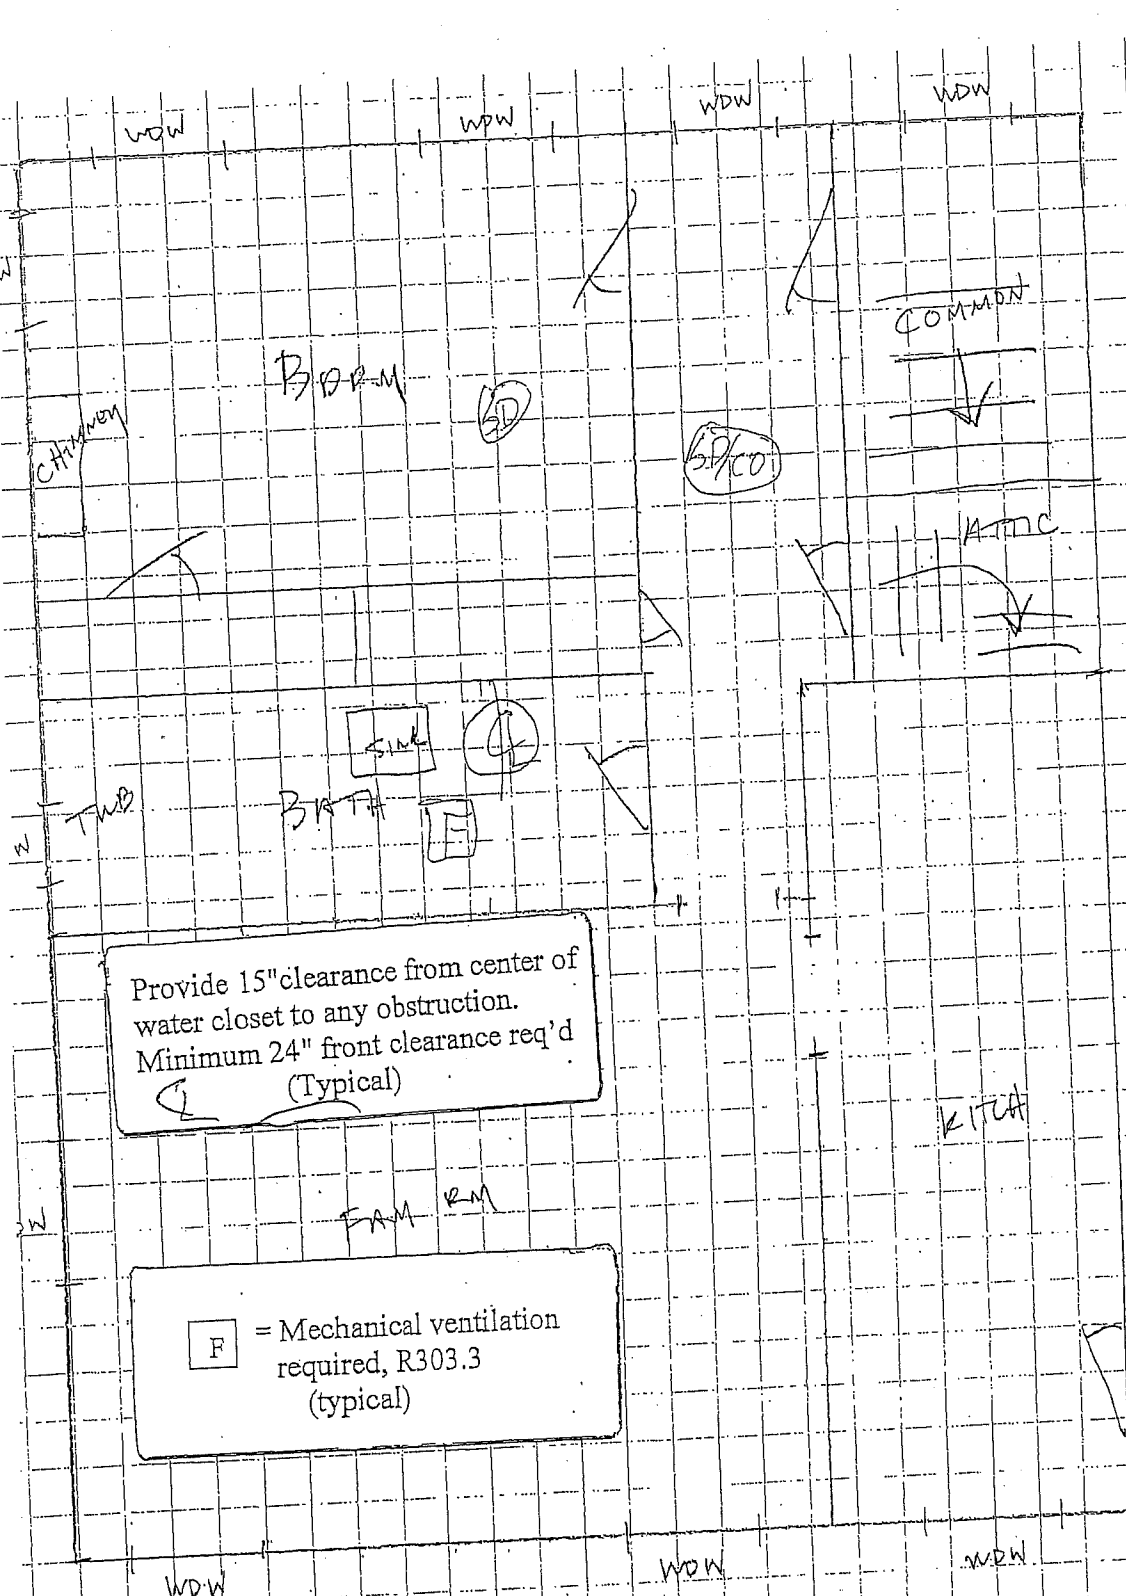 WDW
WDW
WDW
WDW
W
COMMON
BDRM
SD
CHIMNEY
SD/CO
ATTIC
SINK
TUB
BATH
F
W
Provide 15"clearance from center of
water closet to any obstruction.
Minimum 24" front clearance req'd
(Typical)
KITCH
FAM RM
DW
F = Mechanical ventilation
required, R303.3
(typical)
WDW
WDW
WDW